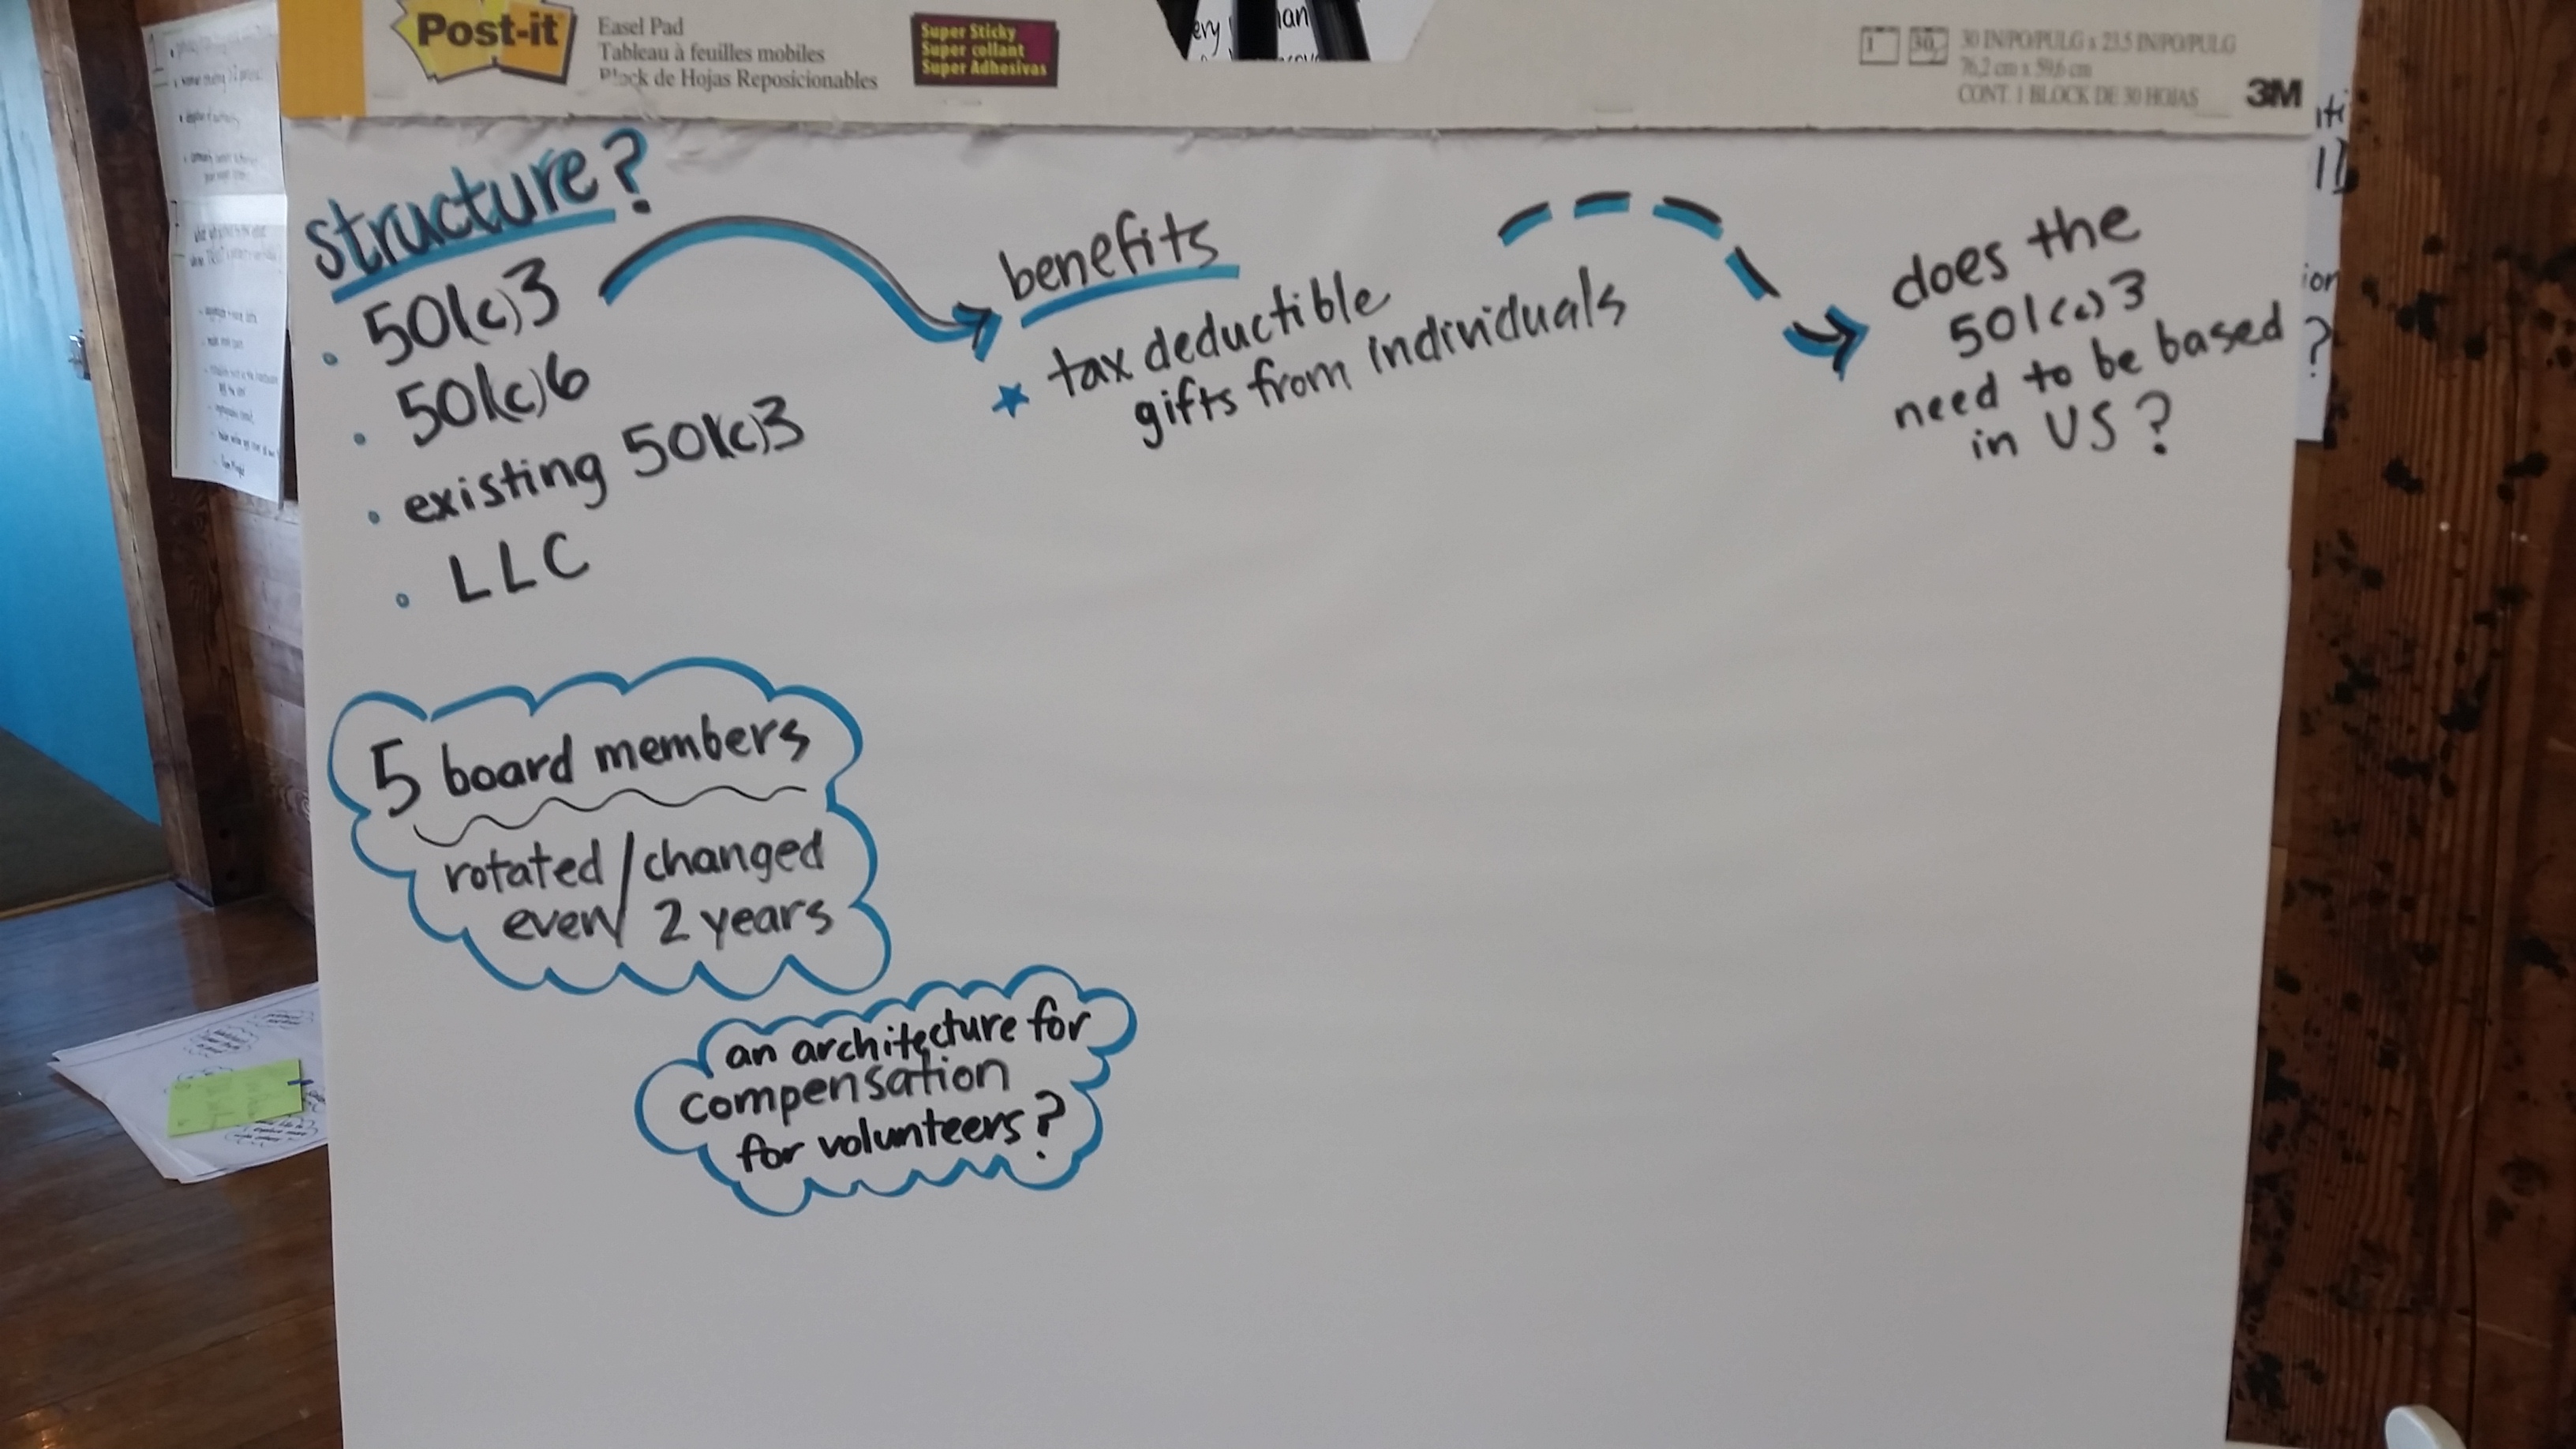 Post-it
Easel Pad
Tableau à feuilles mobiles
Block de Hojas Reposicionables
Super Sticky
Super collant
Super Adhesivas
30 IN/PO/PULG x 23.5 IN/PO/PULG
76,2 cm x 59,6 cm
CONT. 1 BLOCK DE 30 HOJAS
3M
structure?
501(c)3
501(c)6
existing 501(c)3
LLC
benefits
tax deductible
gifts from individuals
does the
501(c)3
need to be based
in US?
5 board members
rotated/changed
every 2 years
an architecture for
compensation
for volunteers?